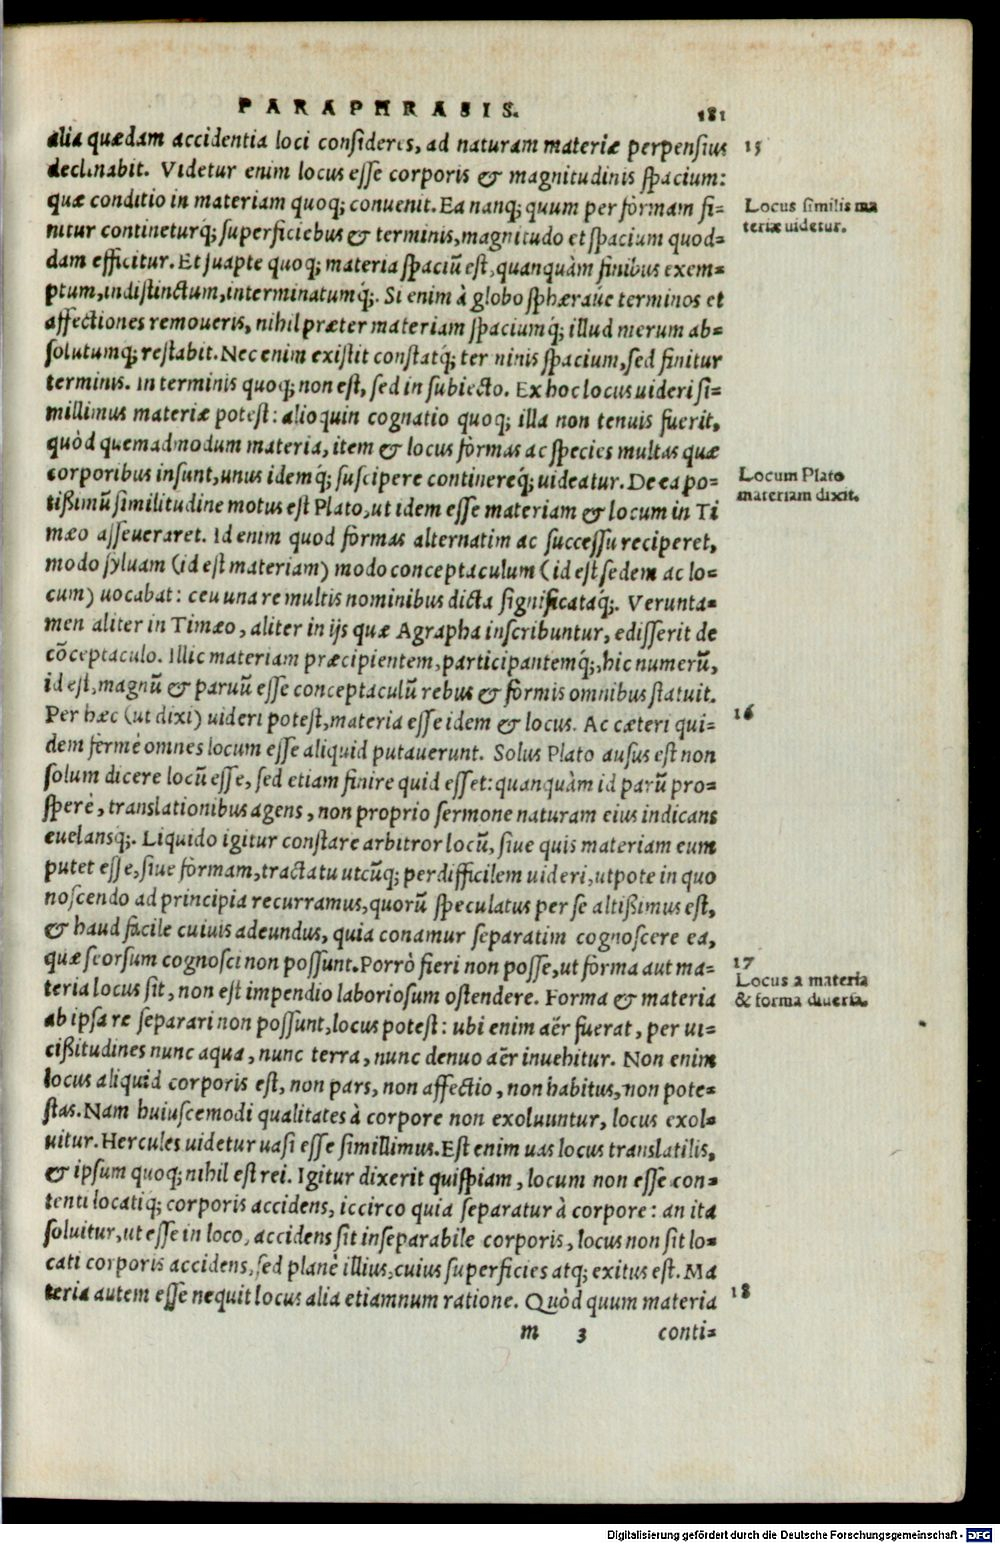 PARAPHRASIS. 181
alia quædam accidentia loci consideres, ad naturam materiæ perpensius 15
declinabit. Videtur enim locus esse corporis & magnitudinis spacium:
quæ conditio in materiam quoq; conuenit. Ea nanq; quum per formam fi-
nitur contineturq́; superficiebus & terminis, magnitudo et spacium quod-
Locus similis ma
teriæ uidetur.
dam efficitur. Et suapte quoq; materia spaciũ est, quanquàm finibus exem-
ptum, indistinctum, interminatumq́;. Si enim à globo sphæraue terminos et
affectiones remoueris, nihil præter materiam spaciumq́; illud merum ab-
solutumq; restabit. Nec enim existit constatq́; terminis spacium, sed finitur
terminis. In terminis quoq; non est, sed in subiecto. Ex hoc locus uideri si-
millimus materiæ potest: alioquin cognatio quoq; illa non tenuis fuerit,
quòd quemadmodum materia, item & locus formas ac species multas quæ
corporibus insunt, unus idemq́; suscipere continereq́; uideatur. De ea po-
Locum Plato
materiam dixit.
tißimũ similitudine motus est Plato, ut idem esse materiam & locum in Ti
mæo asseueraret. Id enim quod formas alternatim ac successu reciperet,
modo syluam (id est materiam) modo conceptaculum (id est sedem ac lo-
cum) uocabat: ceu una re multis nominibus dicta significataq́;. Verunta-
men aliter in Timæo, aliter in ijs quæ Agrapha inscribuntur, edisserit de
cõceptaculo. Illic materiam præcipientem, participantemq́;, hic numerũ,
id est, magnũ & paruũ esse conceptaculũ rebus & formis omnibus statuit.
Per hæc (ut dixi) uideri potest, materia esse idem & locus. Ac cæteri qui- 16
dem fermè omnes locum esse aliquid putauerunt. Solus Plato ausus est non
solum dicere locũ esse, sed etiam finire quid esset: quanquàm id parũ pro-
sperè, translationibus agens, non proprio sermone naturam eius indicans
euelansq́;. Liquido igitur constare arbitror locũ, siue quis materiam eum
putet esse, siue formam, tractatu utcũq; perdifficilem uideri, utpote in quo
noscendo ad principia recurramus, quorũ speculatus per se altißimus est,
& haud facile cuiuis adeundus, quia conamur separatim cognoscere ea,
quæ seorsum cognosci non possunt. Porrò fieri non posse, ut forma aut ma- 17
Locus a materia
& forma diuersa.
teria locus sit, non est impendio laboriosum ostendere. Forma & materia
ab ipsa re separari non possunt, locus potest: ubi enim aër fuerat, per ui-
cißitudines nunc aqua, nunc terra, nunc denuo aër inuehitur. Non enim
locus aliquid corporis est, non pars, non affectio, non habitus, non pote-
stas. Nam huiuscemodi qualitates à corpore non exoluuntur, locus exol-
uitur. Hercules uidetur uasi esse simillimus. Est enim uas locus translatilis,
& ipsum quoq; nihil est rei. Igitur dixerit quispiam, locum non esse con-
tenti locatiq; corporis accidens, iccirco quia separatur à corpore: an ita
soluitur, ut esse in loco, accidens sit inseparabile corporis, locus non sit lo-
cati corporis accidens, sed planè illius, cuius superficies atq; exitus est. Ma
teria autem esse nequit locus alia etiamnum ratione. Quòd quum materia 18
m 3 conti-
Digitalisierung gefördert durch die Deutsche Forschungsgemeinschaft - DFG